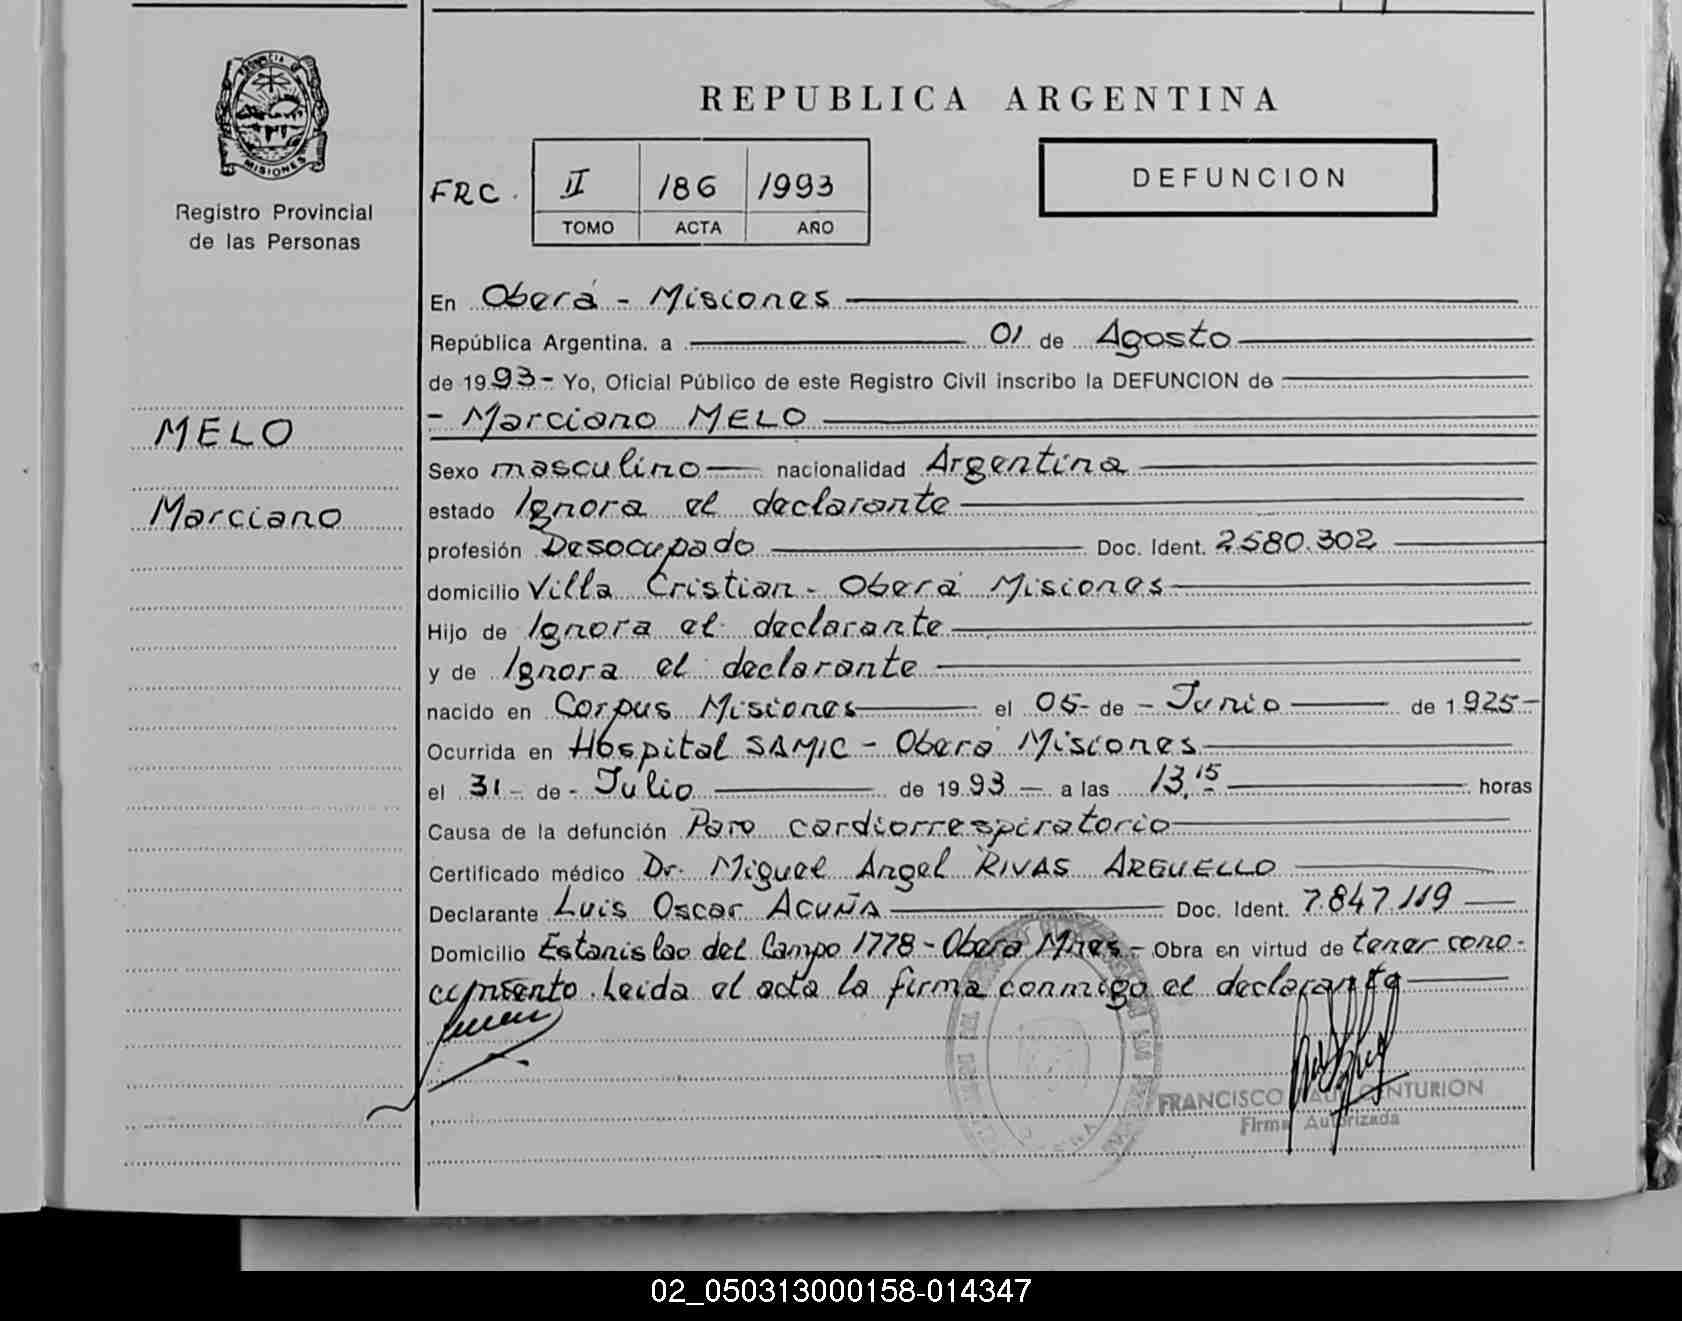 PROVINCIA
MISIONES
Registro Provincial
de las Personas
MELO
Marciano
REPUBLICA ARGENTINA
FRC. II 186 1993
TOMO ACTA AÑO
DEFUNCION
En Oberá - Misiones
República Argentina, a 01 de Agosto
de 1993- Yo, Oficial Público de este Registro Civil inscribo la DEFUNCION de
- Marciano MELO
Sexo masculino nacionalidad Argentina
estado Ignora el declarante
profesión Desocupado Doc. Ident. 2.580.302
domicilio Villa Cristian - Oberá Misiones
Hijo de Ignora el declarante
y de Ignora el declarante
nacido en Corpus Misiones el 05- de - Junio de 1.925-
Ocurrida en Hospital SAMIC - Oberá Misiones
el 31- de - Julio de 1993 - a las 13,15 horas
Causa de la defunción Paro cardiorrespiratorio
Certificado médico Dr. Miguel Angel RIVAS ARGUELLO
Declarante Luis Oscar ACUÑA Doc. Ident. 7.847.119
Domicilio Estanislao del Campo 1778 - Oberá Mnes - Obra en virtud de tener cono-
cimiento. Leida el acta la firma conmigo el declarante
FRANCISCO CENTURION
Firma Autorizada
02_050313000158-014347